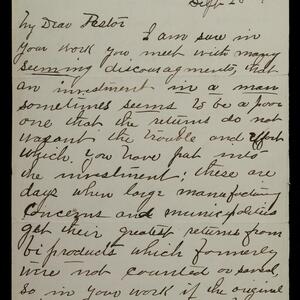 Sept
My Dear Pastor
I am sure in
your work you meet with many
seeming discouragements, that
an investment in a man
sometimes seems to be a poor
one that the returns do not
warrant the trouble and effort
which you have put into
the investment; these are
days when large manufacturing
concerns and municipalities
get their greatest returns from
biproducts which formerly
were not counted or saved,
so in your work if the original